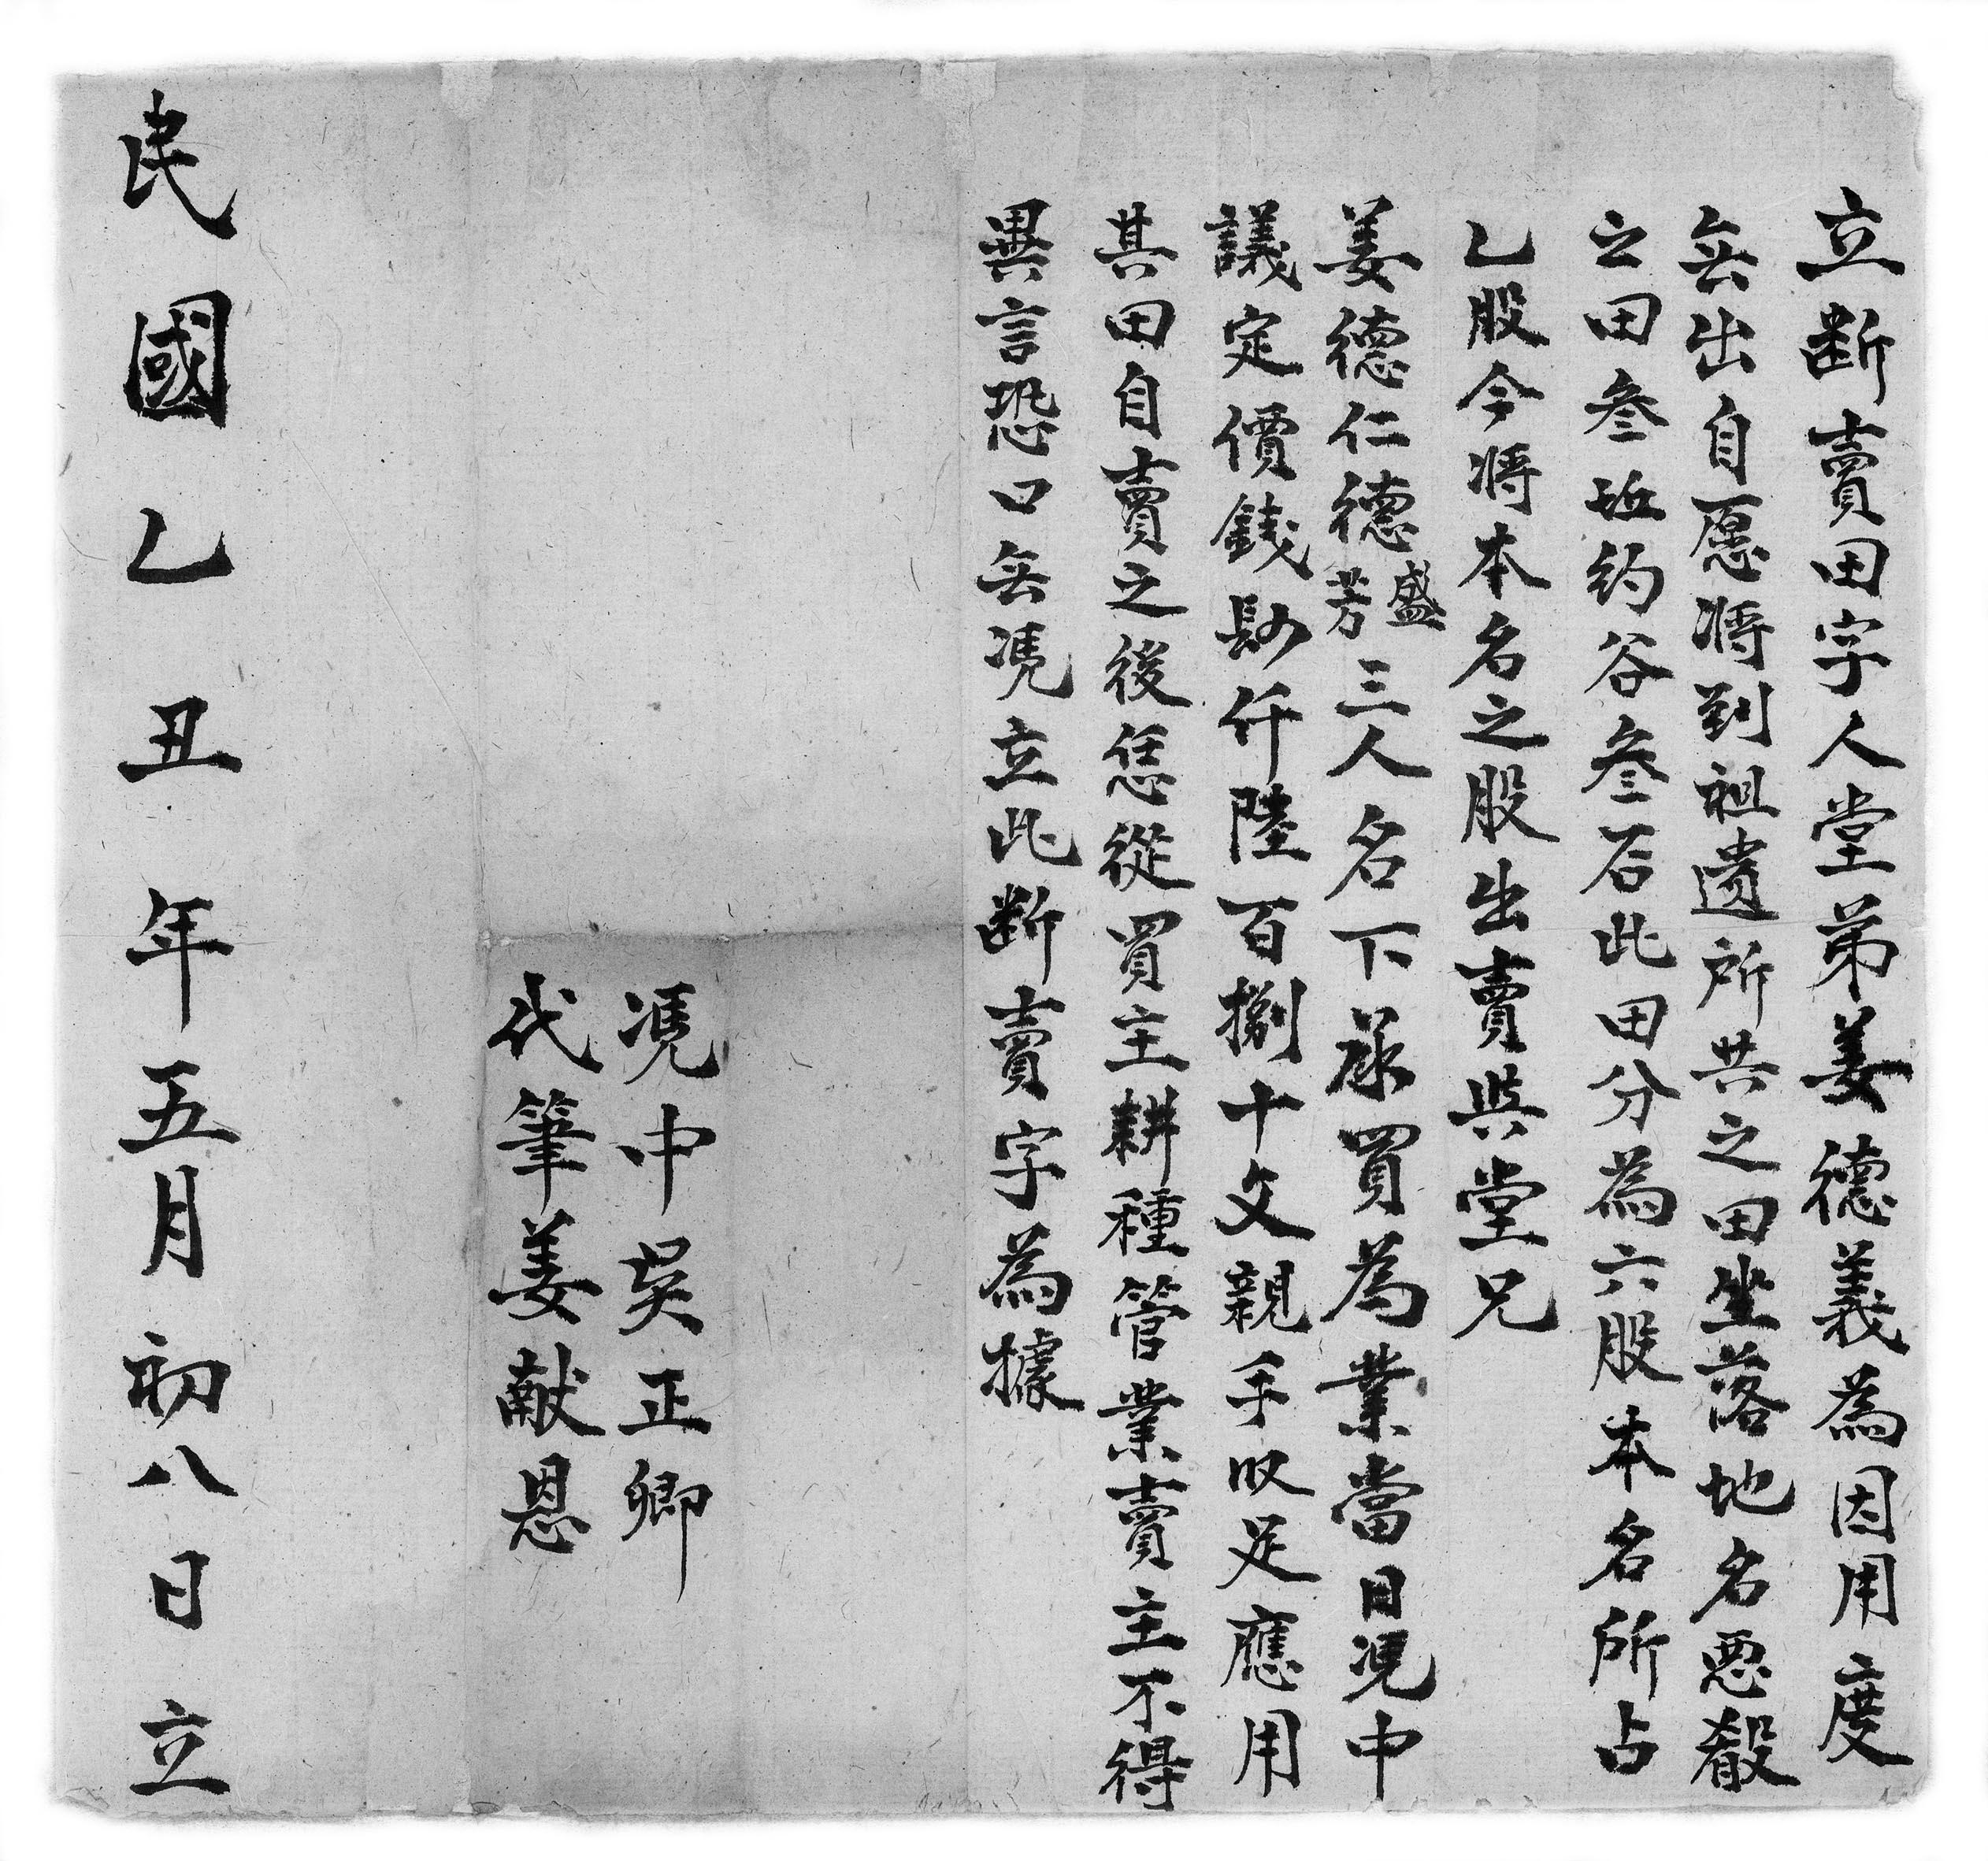 立断賣田字人堂弟姜德義為因用度
無出自愿将到祖遗所共之田坐落地名悪
之田叄坵約谷叄石此田分為六股本名所占
乙股今将本名之股出賣與堂兄
姜德仁德盛芳三人名下承買為業當日凴中
議定價錢仟陸百捌十文親手收足應用
其田自賣之後恁從買主耕種管業賣主不得
異言恐口無凴立此断賣字為據
凴中吳正卿
代筆姜献恩
民國乙丑年五月初八日立